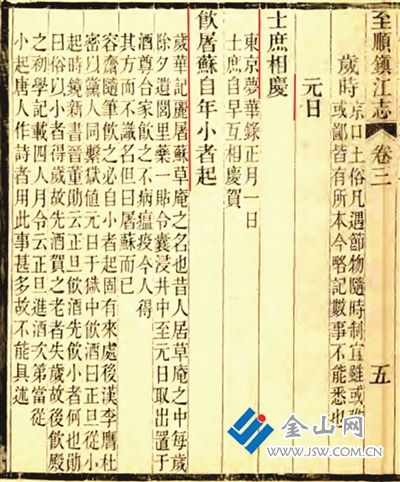 至順鎮江志
卷三
五
歲時
京口土俗凡遇節物隨時制宜雖或
或鄙皆有所本今略記數事不能悉也
元日
士庶相慶
東京夢華錄正月一日
士庶自早互相慶賀
飲屠蘇自年小者起
歲華記麗屠蘇草庵之名也昔人居草庵之中每歲
除夕遺閭里藥一貼令囊浸井中至元日取出置于
酒尊合家飲之不病瘟疫今人得
其方而不識名但曰屠蘇而已
容齋隨筆飲之必自小者起固有來處後漢李膺杜
密以黨人同繫獄值元日于獄中飲酒曰正旦從小
起時鏡新書晉董勛云正旦飲酒先飲小者何也勛
曰俗以小者得歲故先酒賀之老者失歲故後飲殿
之初學記載四人月令云正旦進酒次第當從
小起唐人作詩者用此事甚多故不能具述
金山网
WWW.JSW.COM.CN